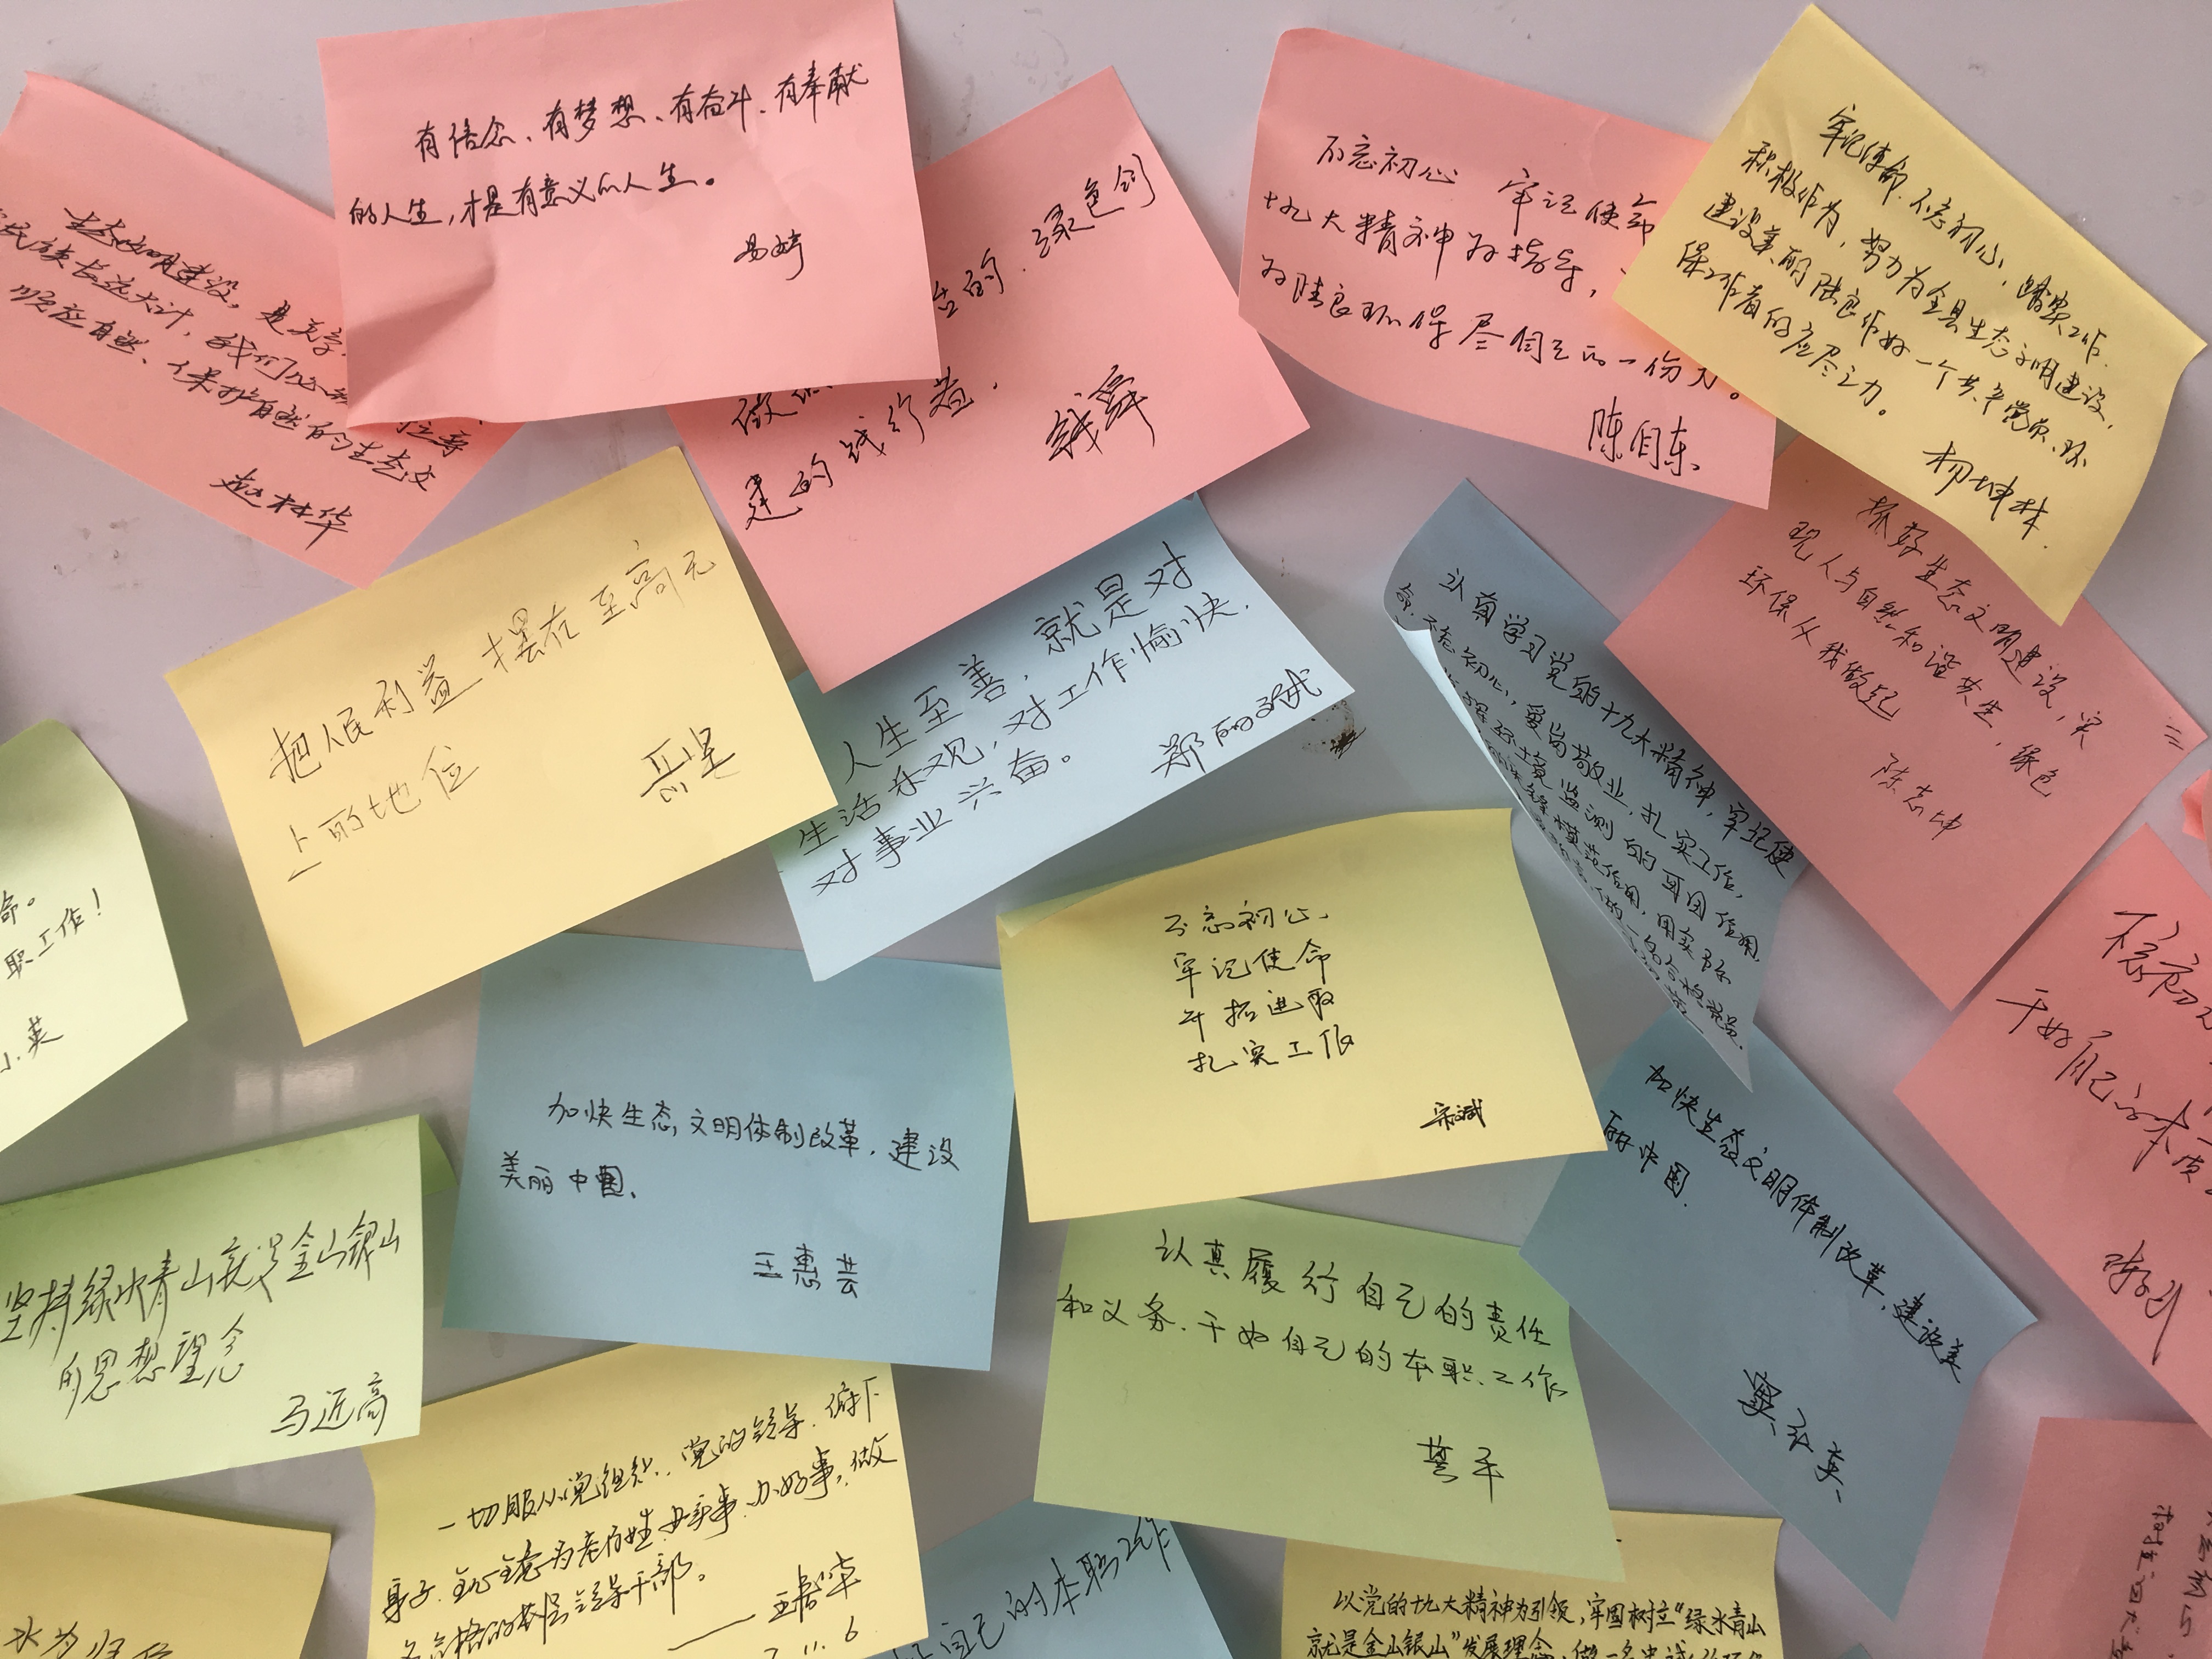 有信念、有梦想、有奋斗、有奉献
的人生,才是有意义的人生。
易婷
生态文明建设,是关乎
民族长远大计,我们必
顺应自然、保护自然的生态文
赵林华
告的.绿色创
建的践行者.
钱舞
不忘初心 牢记使命
十九大精神为指导,
为陆良环保尽自己的一份力。
陈自东
牢记使命.不忘初心,踏实工作.
积极作为,努力为全县生态文明建设,
建设美丽陆良作好一个共产党员、环
保工作者的应尽之力。
杨坤林.
抓好生态文明建设,实
现人与自然和谐共生,绿色
环保从我做起
陈志坤
把人民利益摆在至高无
上的地位
人生至善,就是对
生活乐观,对工作愉快.
对事业兴奋。
郑丽斌
认真学习党的十九大精神,牢记使
命,不忘初心,爱岗敬业,扎实工作,
环境监测
命。
职工作!
小英
不忘初心、
牢记使命
开拓进取
扎实工作
宋斌
加快生态文明体制改革,建设
美丽中国、
王惠芸
加快生态文明体制改革,建设美
丽中国.
窦云英
不忘初
干好自己的本质
坚持绿水青山就是金山银山
的思想理念
马近高
认真履行自己的责任
和义务.干好自己的本职工作
一切服从党组织.党的领导.俯下
身子.全心全意为老百姓办实事、办好事,做
合格的基层领导干部。
11.6
自己的本职工作
以党的十九大精神为引领,牢固树立“绿水青山
就是金山银山”发展理念、做一名忠诚
树立四大